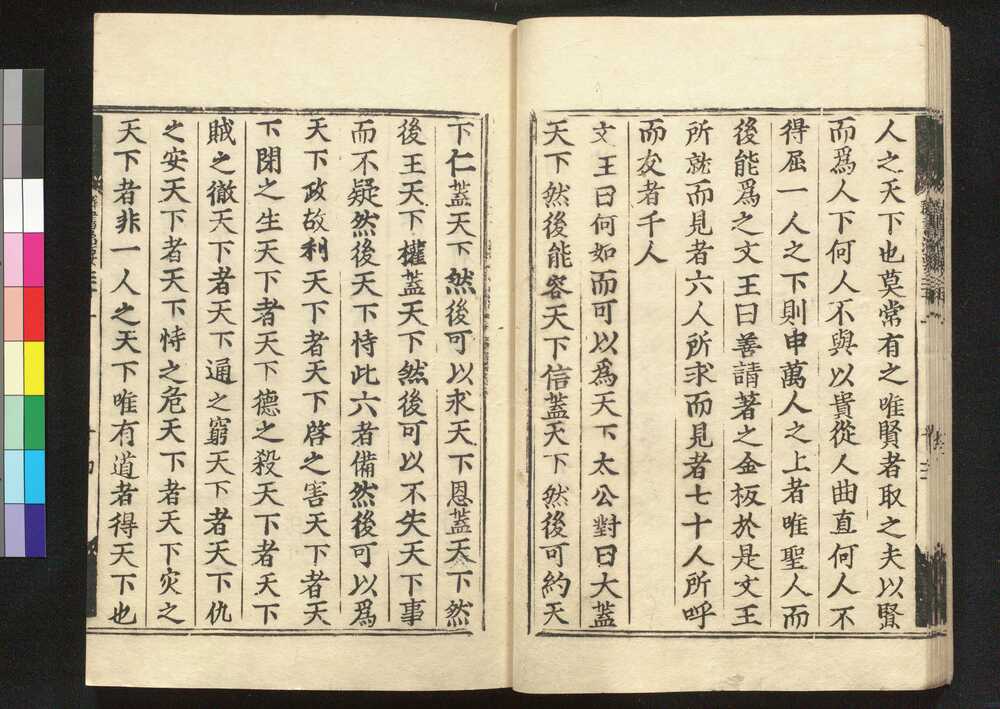 人之天下也莫常有之唯賢者取之夫以賢
而爲人下何人不與以貴從人曲直何人不
得屈一人之下則申萬人之上者唯聖人而
後能爲之文王曰善請著之金板於是文王
所就而見者六人所求而見者七十人所呼
而友者千人
文王曰何如而可以爲天下太公對曰大蓋
天下然後能容天下信蓋天下然後可約天
下仁蓋天下然後可以求天下恩蓋天下然
後王天下權蓋天下然後可以不失天下事
而不疑然後天下恃此六者備然後可以爲
天下政故利天下者天下啓之害天下者天
下閉之生天下者天下德之殺天下者天下
賊之徹天下者天下通之窮天下者天下仇
之安天下者天下恃之危天下者天下灾之
天下者非一人之天下唯有道者得天下也